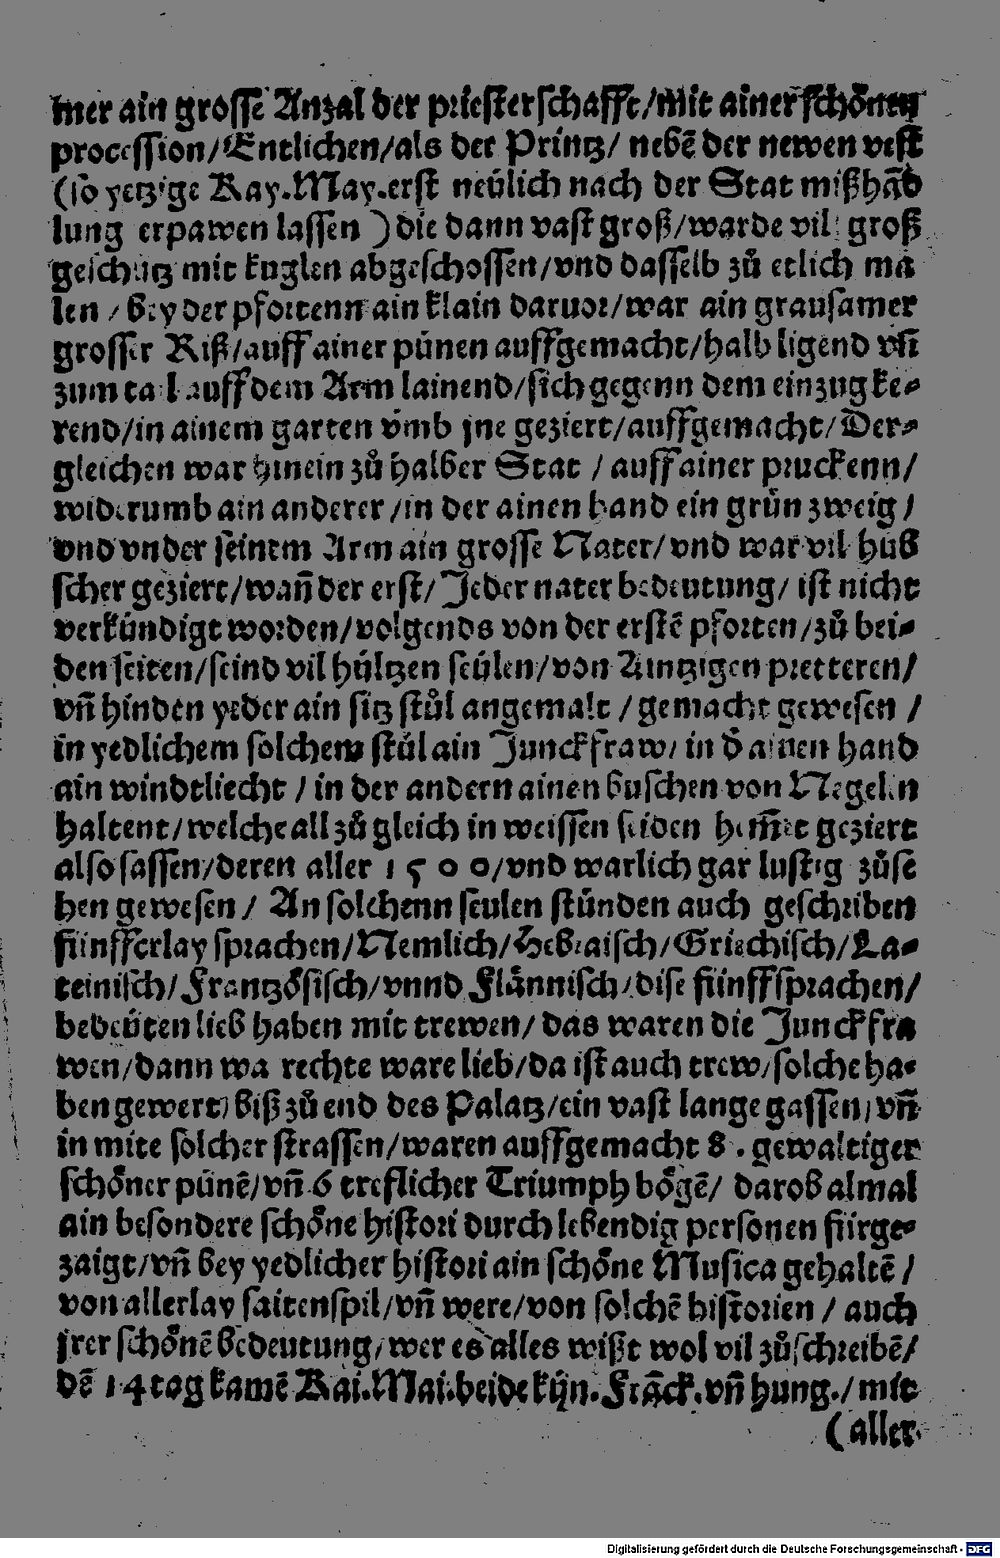 mer ain grosse Anzal der priesterschafft/mit ainer schönen
procession/Entlichen/als der Printz/ nebē der newen vest
(so yetzige Kay.May.erst neülich nach der Stat mißhād
lung erpawen lassen ) die dann vast groß/warde vil groß
geschütz mit kuglen abgeschossen/vnd dasselb zů etlich ma
len / bey der pfortenn ain klain daruor/war ain grausamer
grosser Riß/auff ainer pünen auffgemacht/halb ligend vñ
zum tail auff dem Arm lainend/sich gegenn dem einzug ke⸗
rend/in ainem garten vmb jne geziert/auffgemacht/Der⸗
gleichen war hinein zů halber Stat / auff ainer pruckenn/
widerumb ain anderer/in der ainen hand ein grün zweig/
vnd vnder seinem Arm ain grosse Nater/vnd war vil hüb
scher geziert/wañ der erst/Jeder nater bedeutung/ ist nicht
verkündigt worden/volgends von der erstē pforten/zů bei⸗
den seiten/seind vil hültzen seülen/von Aintzigen pretteren/
vñ hinden yeder ain sitz stůl angemalt /gemacht gewesen /
in yedlichem solchem stůl ain Junckfraw/ in d̄ ainen hand
ain windtliecht / in der andern ainen buschen von Negelin
haltent/welche all zů gleich in weissen seiden hem̄et geziert
also sassen/deren aller 1500/vnd warlich gar lustig zůse
hen gewesen/ An solchenn seulen stůnden auch geschriben
fünfferlay sprachen/Nemlich/Hebraisch/Griechisch/La⸗
teinisch/Frantzösisch/vnnd Flännisch/dise fünff sprachen/
bedeüten lieb haben mit trewen/ das waren die Junckfra
wen/dann wa rechte ware lieb/da ist auch trew/solche ha⸗
ben gewert/biß zů end des Palatz/ein vast lange gassen/vñ
in mite solcher strassen/waren auffgemacht 8. gewaltiger
schöner pünē/vñ 6 treflicher Triumph bögē/ darob almal
ain besondere schöne histori durch lebendig personen fürge⸗
zaigt/vñ bey yedlicher histori ain schöne Musica gehaltē/
von allerlay saitenspil/vñ were/von solchē historien / auch
jrer schönē bedeutung/wer es alles wißt wol vil zůschreibē/
dē 14 tag kamē Kai.Mai.beide kün.Frāck.vñ hung./mit
(aller
Digitalisierung gefördert durch die Deutsche Forschungsgemeinschaft - DFG